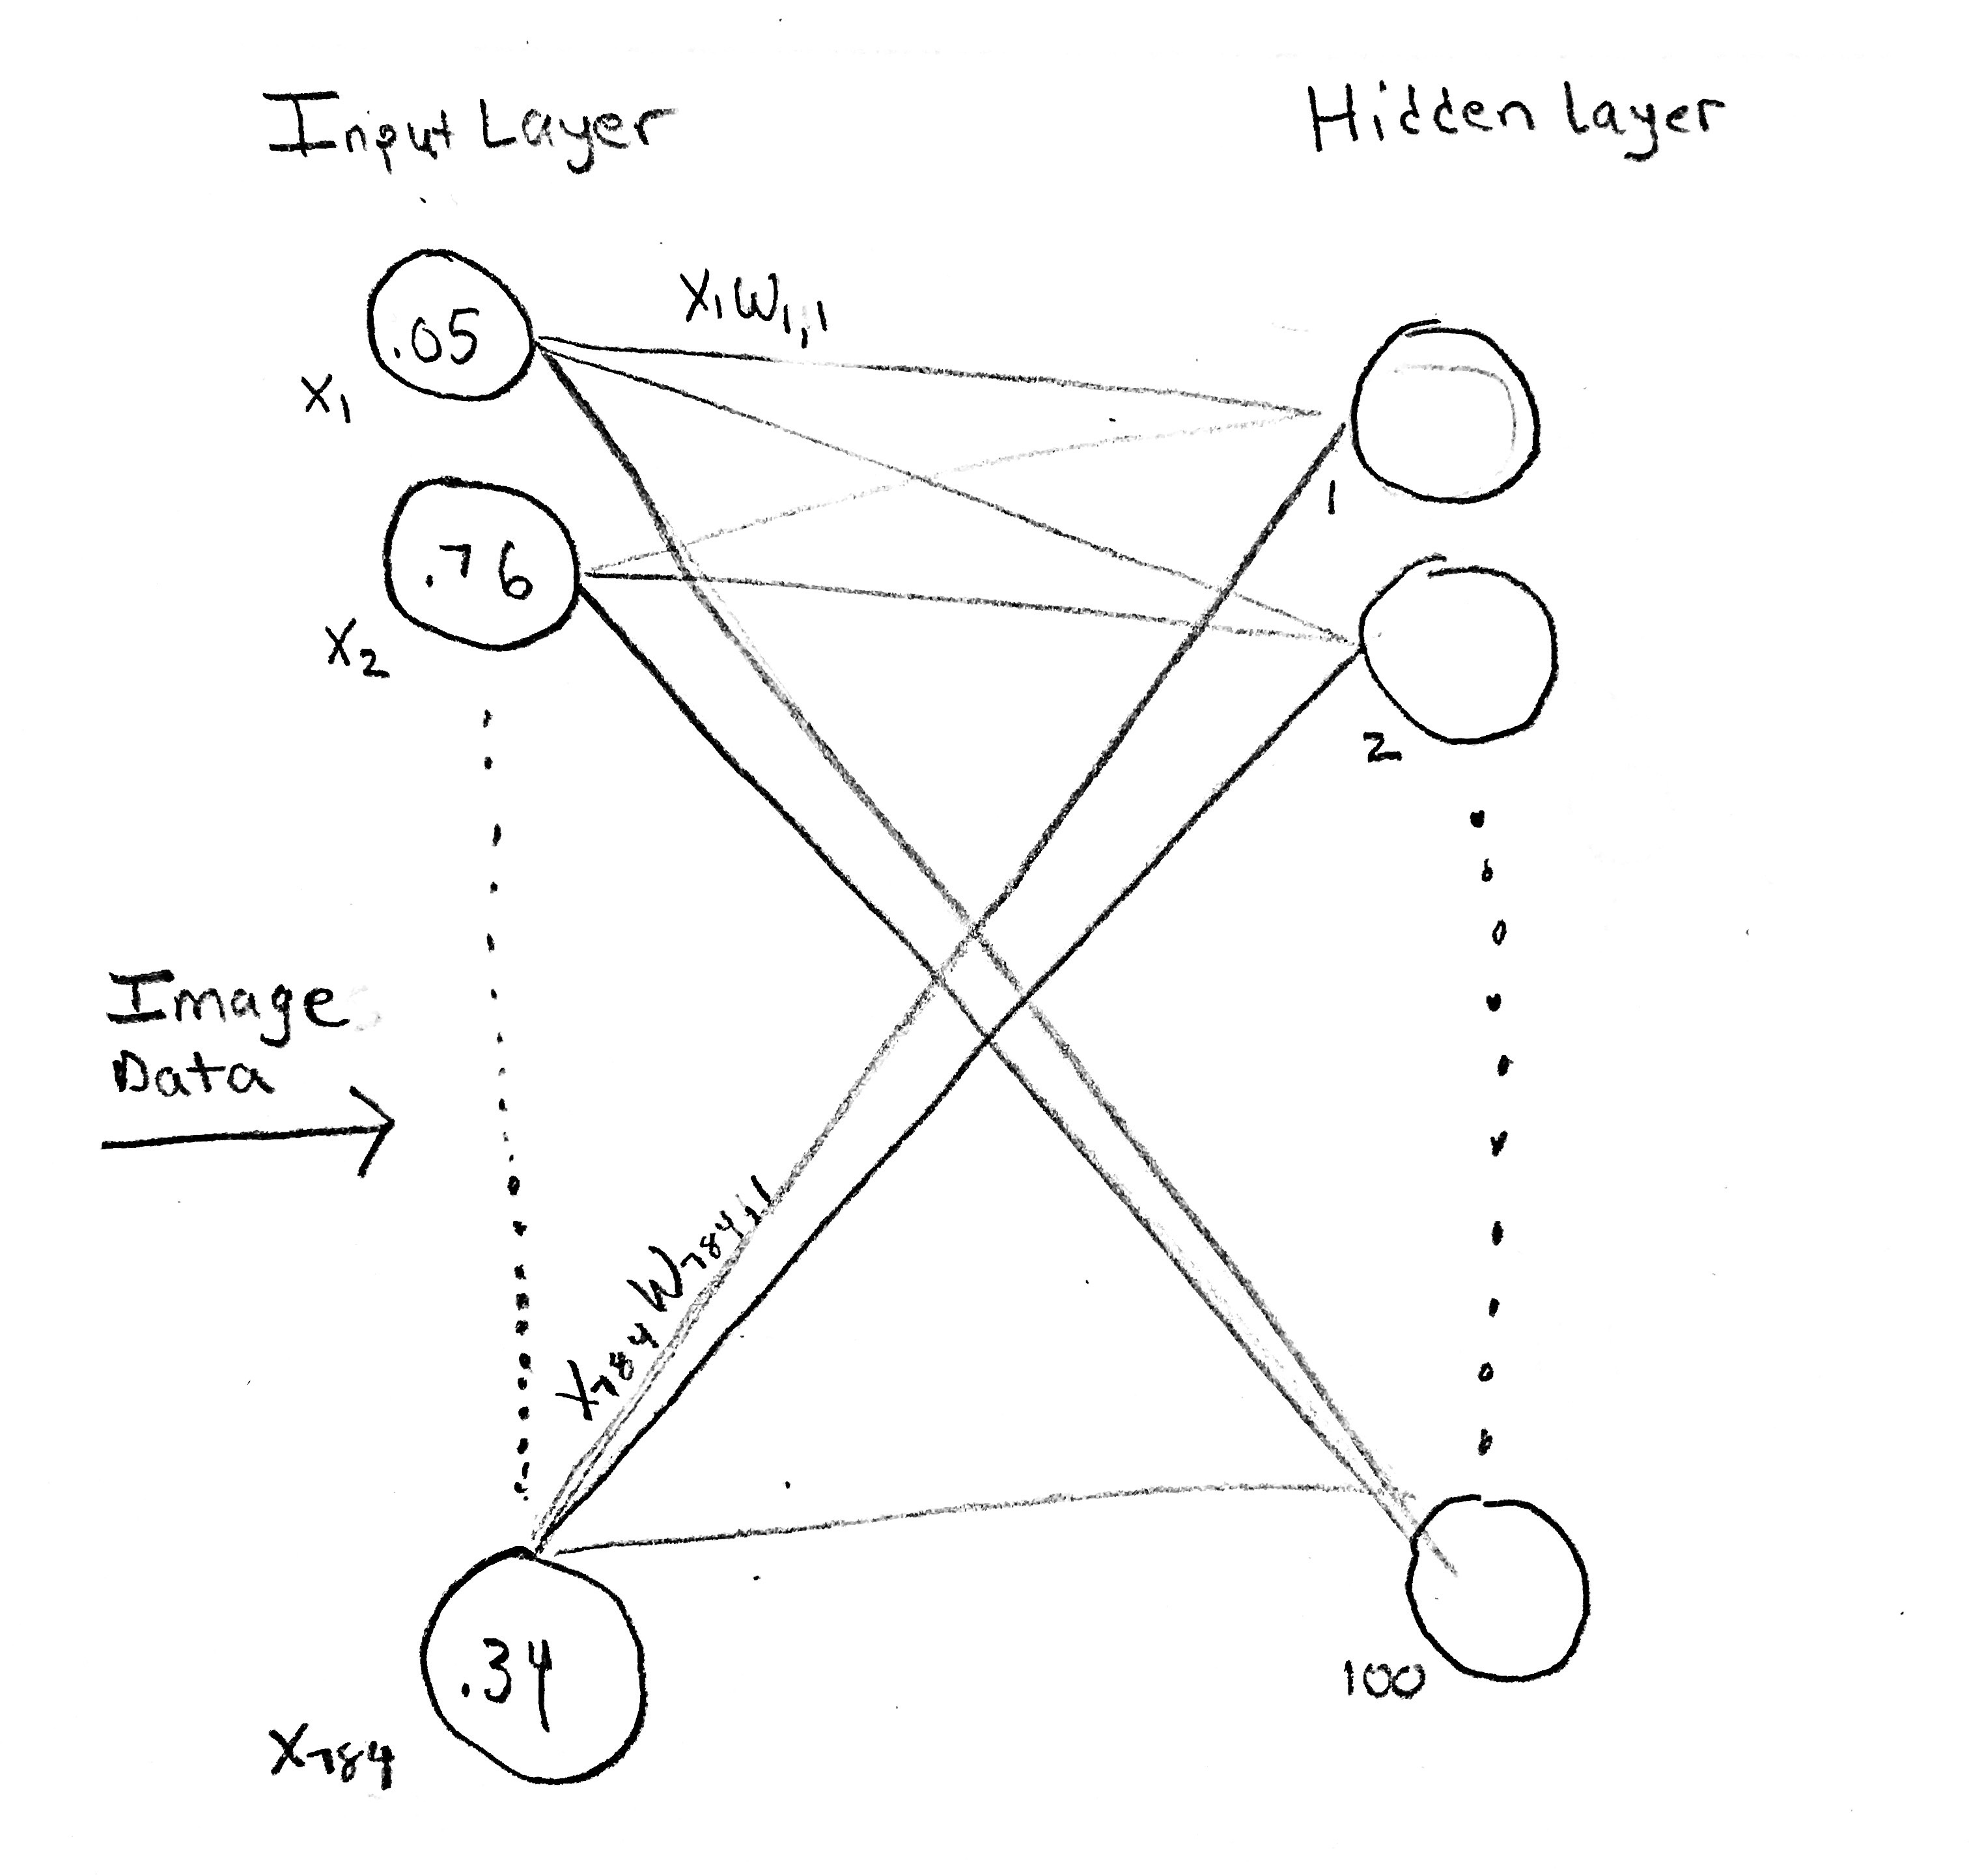 Input Layer
Hidden layer
X₁W₁,₁
.05
X₁
1
.76
X₂
2
Image
Data
X₇₈₄ W₇₈₄,₁
.34
100
X₇₈₄